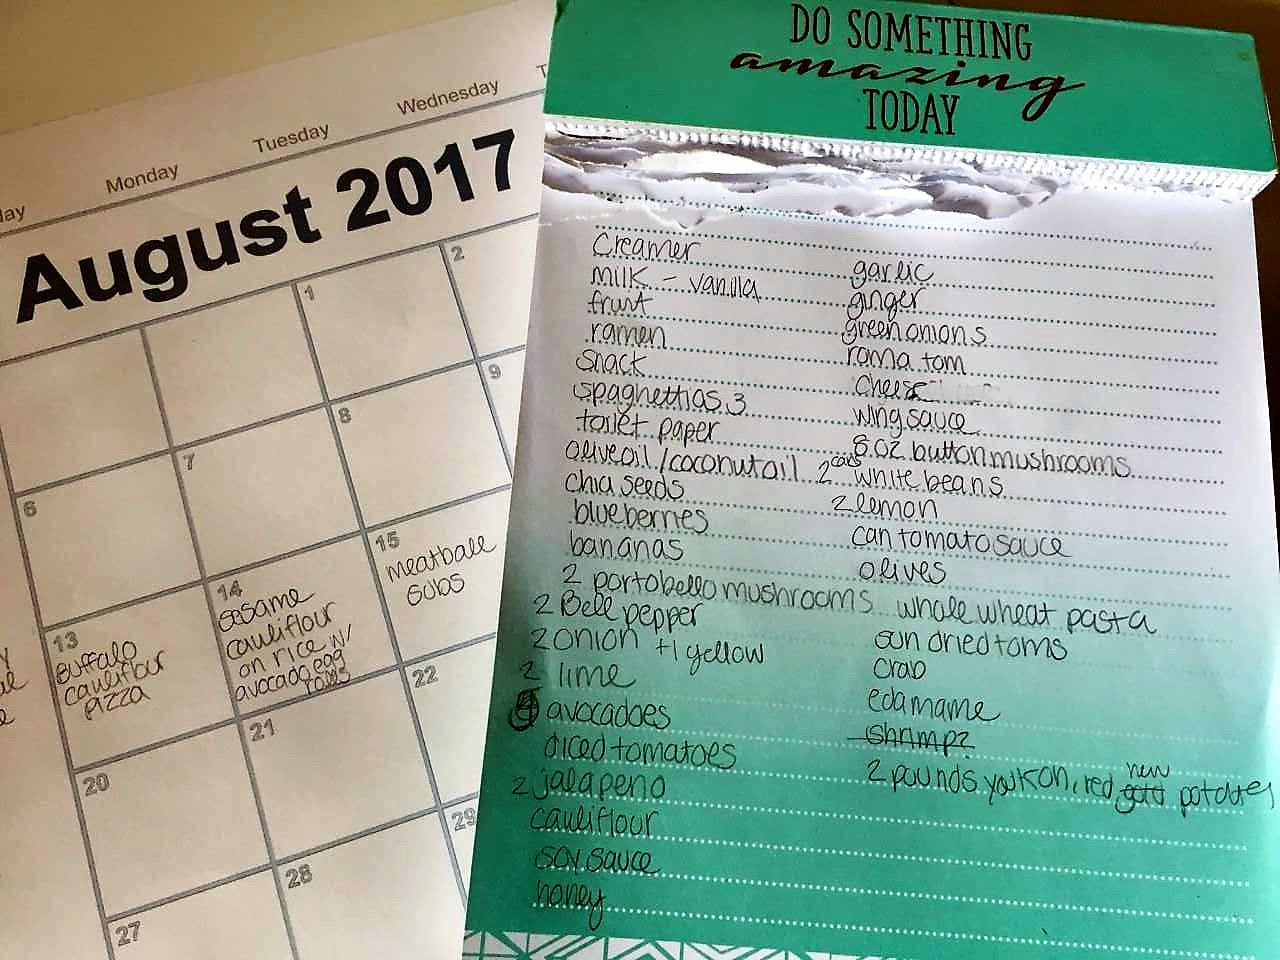 DO SOMETHING
amazing
TODAY
Wednesday
Tuesday
Monday
August 2017
1
2
6
7
8
9
13
Buffalo
cauliflour
pizza
14
sesame
cauliflour
on rice w/
avocado egg
rolls
15
meatball
subs
20
21
22
27
28
29
creamer
milk - vanilla
fruit
ramen
snack
spaghettios 3
toilet paper
olive oil / coconut oil
chia seeds
blueberries
bananas
2 portobello mushrooms
2 Bell pepper
2 onion +1 yellow
2 lime
avocadoes
diced tomatoes
2 jalapeno
cauliflour
soy sauce
honey
garlic
ginger
green onions
roma tom
cheese
wing sauce
8 oz button mushrooms
2 cans white beans
2 lemon
can tomato sauce
olives
whole wheat pasta
sun dried toms
crab
edamame
shrimp?
2 pounds yukon, red new gold potatoes